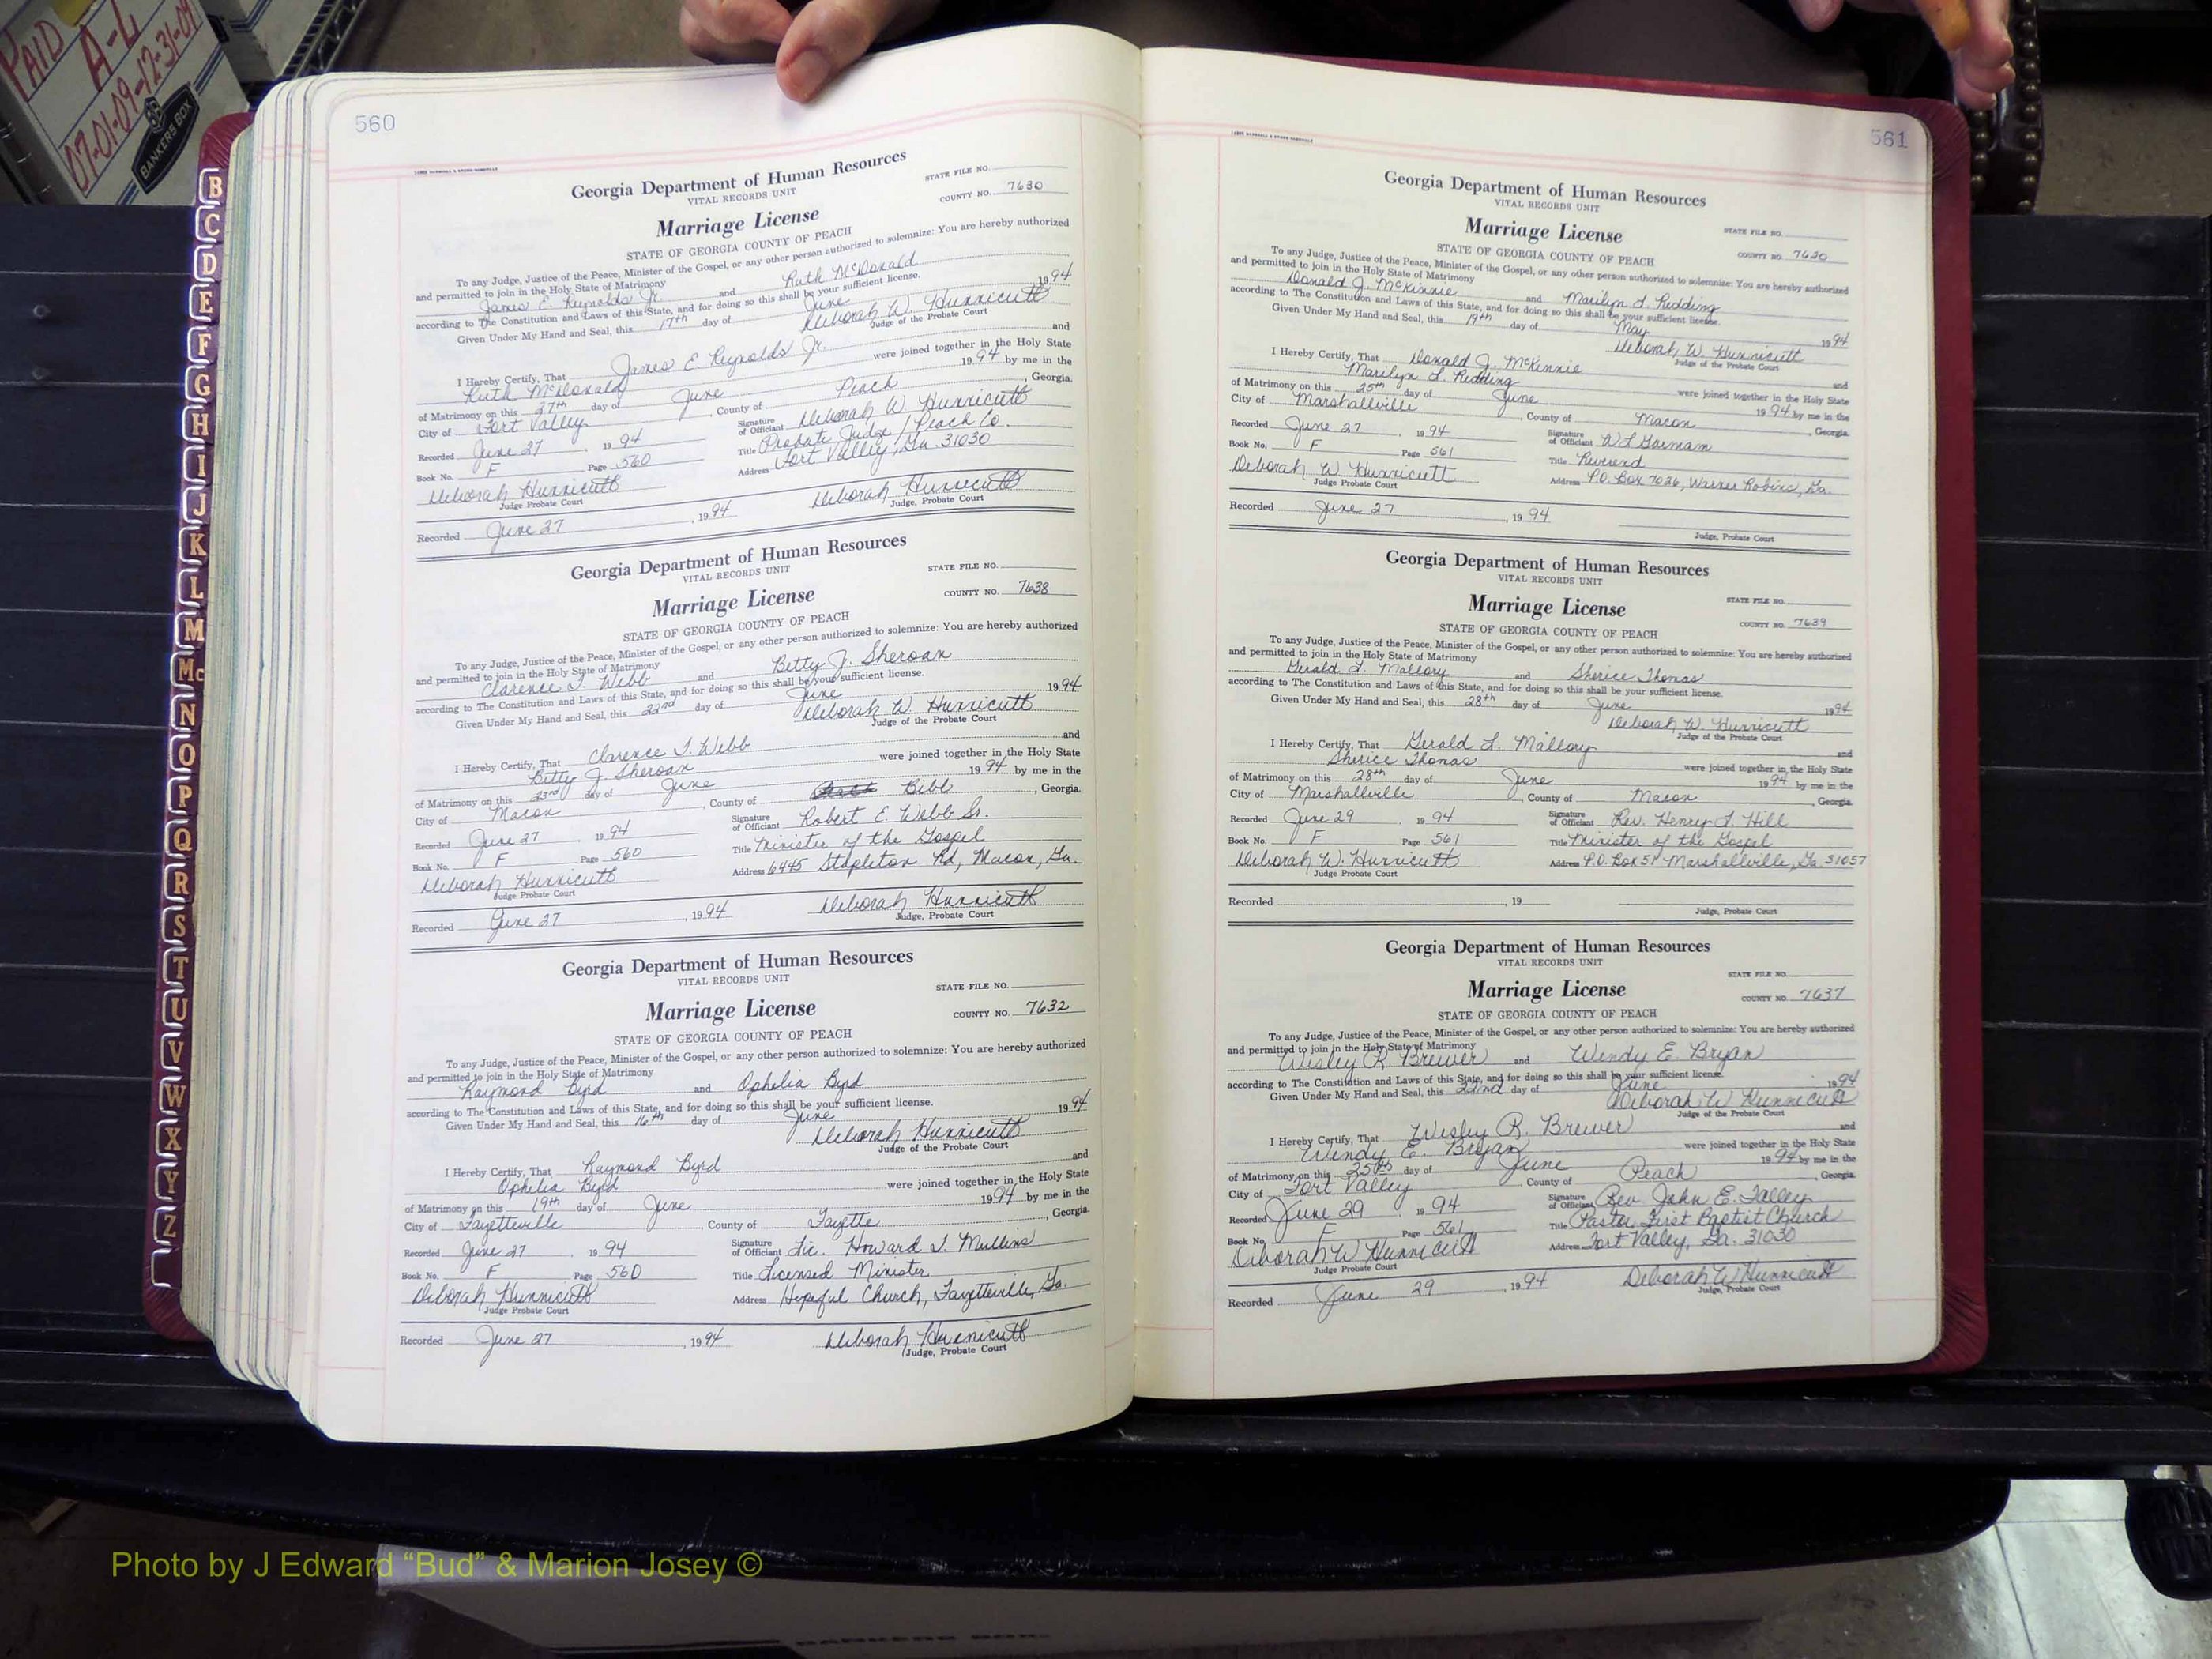 PAID
A-L
07-01-09-12-31-09
BANKERS BOX
B
C
D
E
F
G
H
I
J
K
L
M
Mc
N
O
P
Q
R
S
T
U
V
W
X
Y
Z
560
Georgia Department of Human Resources
VITAL RECORDS UNIT
STATE FILE NO.
COUNTY NO. 7630
Marriage License
STATE OF GEORGIA COUNTY OF PEACH
To any Judge, Justice of the Peace, Minister of the Gospel, or any other person authorized to solemnize: You are hereby authorized
and permitted to join in the Holy State of Matrimony
James E. Reynolds Jr. and Ruth McDonald
according to The Constitution and Laws of this State, and for doing so this shall be your sufficient license.
Given Under My Hand and Seal, this 17th day of June 1994
Deborah W. Hunnicutt
Judge of the Probate Court
I Hereby Certify, That James E. Reynolds Jr. and
Ruth McDonald were joined together in the Holy State
of Matrimony on this 27th day of June 1994 by me in the
City of Fort Valley, County of Peach, Georgia.
Recorded June 27, 1994 Signature of Officiant Deborah W. Hunnicutt
Book No. F Page 560 Title Probate Judge / Peach Co.
Address Fort Valley, Ga. 31030
Deborah Hunnicutt
Judge Probate Court
Recorded June 27, 1994 Deborah Hunnicutt
Judge, Probate Court
Georgia Department of Human Resources
VITAL RECORDS UNIT
STATE FILE NO.
COUNTY NO. 7638
Marriage License
STATE OF GEORGIA COUNTY OF PEACH
To any Judge, Justice of the Peace, Minister of the Gospel, or any other person authorized to solemnize: You are hereby authorized
and permitted to join in the Holy State of Matrimony
Clarence T. Webb and Betty J. Sheroan
according to The Constitution and Laws of this State, and for doing so this shall be your sufficient license.
Given Under My Hand and Seal, this 22nd day of June 1994
Deborah W. Hunnicutt
Judge of the Probate Court
I Hereby Certify, That Clarence T. Webb and
Betty J. Sheroan were joined together in the Holy State
of Matrimony on this 23rd day of June 1994 by me in the
City of Macon, County of Bibb, Georgia.
Recorded June 27 1994 Signature of Officiant Robert E. Webb Sr.
Book No. F Page 560 Title Minister of the Gospel
Address 6445 Stapleton Rd, Macon, Ga.
Deborah Hunnicutt
Judge Probate Court
Recorded June 27, 1994 Deborah Hunnicutt
Judge, Probate Court
Georgia Department of Human Resources
VITAL RECORDS UNIT
STATE FILE NO.
COUNTY NO. 7632
Marriage License
STATE OF GEORGIA COUNTY OF PEACH
To any Judge, Justice of the Peace, Minister of the Gospel, or any other person authorized to solemnize: You are hereby authorized
and permitted to join in the Holy State of Matrimony
Raymond Byrd and Ophelia Byrd
according to The Constitution and Laws of this State, and for doing so this shall be your sufficient license.
Given Under My Hand and Seal, this 16th day of June 1994
Deborah Hunnicutt
Judge of the Probate Court
I Hereby Certify, That Raymond Byrd and
Ophelia Byrd were joined together in the Holy State
of Matrimony on this 19th day of June 1994 by me in the
City of Fayetteville, County of Fayette, Georgia.
Recorded June 27 1994 Signature of Officiant Lic. Howard T. Mullins
Book No. F Page 560 Title Licensed Minister
Address Hopeful Church, Fayetteville, Ga.
Deborah Hunnicutt
Judge Probate Court
Recorded June 27, 1994 Deborah Hunnicutt
Judge, Probate Court
561
Georgia Department of Human Resources
VITAL RECORDS UNIT
Marriage License
STATE FILE NO.
STATE OF GEORGIA COUNTY OF PEACH
COUNTY NO. 7620
To any Judge, Justice of the Peace, Minister of the Gospel, or any other person authorized to solemnize: You are hereby authorized
and permitted to join in the Holy State of Matrimony
Donald J. McKinnie and Marilyn L. Redding
according to The Constitution and Laws of this State, and for doing so this shall be your sufficient license.
Given Under My Hand and Seal, this 19th day of May 1994
Deborah W. Hunnicutt
Judge of the Probate Court
I Hereby Certify, That Donald J. McKinnie and
Marilyn L. Redding were joined together in the Holy State
of Matrimony on this 25th day of June 1994 by me in the
City of Marshallville, County of Macon, Georgia.
Recorded June 27, 1994 Signature of Officiant
Book No. F Page 561 Title Reverend
Address P.O. Box 7026, Warner Robins, Ga.
Deborah W. Hunnicutt
Judge Probate Court
Recorded June 27, 1994
Judge, Probate Court
Georgia Department of Human Resources
VITAL RECORDS UNIT
Marriage License
STATE FILE NO.
STATE OF GEORGIA COUNTY OF PEACH
COUNTY NO. 7639
To any Judge, Justice of the Peace, Minister of the Gospel, or any other person authorized to solemnize: You are hereby authorized
and permitted to join in the Holy State of Matrimony
Gerald L. Mallory and Sherice Thomas
according to The Constitution and Laws of this State, and for doing so this shall be your sufficient license.
Given Under My Hand and Seal, this 28th day of June 1994
Deborah W. Hunnicutt
Judge of the Probate Court
I Hereby Certify, That Gerald L. Mallory and
Sherice Thomas were joined together in the Holy State
of Matrimony on this 28th day of June 1994 by me in the
City of Marshallville, County of Macon, Georgia.
Recorded June 29 1994 Signature of Officiant Rev. Henry L. Hill
Book No. F Page 561 Title Minister of the Gospel
Address P.O. Box 51 Marshallville, Ga. 31057
Deborah W. Hunnicutt
Judge Probate Court
Recorded , 19
Judge, Probate Court
Georgia Department of Human Resources
VITAL RECORDS UNIT
Marriage License
STATE FILE NO.
COUNTY NO. 7637
STATE OF GEORGIA COUNTY OF PEACH
To any Judge, Justice of the Peace, Minister of the Gospel, or any other person authorized to solemnize: You are hereby authorized
and permitted to join in the Holy State of Matrimony
Wesley R. Brewer and Wendy E. Bryan
according to The Constitution and Laws of this State, and for doing so this shall be your sufficient license.
Given Under My Hand and Seal, this 22nd day of June 1994
Deborah W Hunnicutt
Judge of the Probate Court
I Hereby Certify, That Wesley R. Brewer and
Wendy E. Bryan were joined together in the Holy State
of Matrimony on this 25th day of June 1994 by me in the
City of Fort Valley, County of Peach, Georgia.
Recorded June 29 1994 Signature of Officiant Rev John E. Talley
Book No. F Page 561 Title Pastor, First Baptist Church
Address Fort Valley, Ga. 31030
Deborah W Hunnicutt
Judge Probate Court
Recorded June 29, 1994 Deborah W Hunnicutt
Judge, Probate Court
Photo by J Edward “Bud” & Marion Josey ©